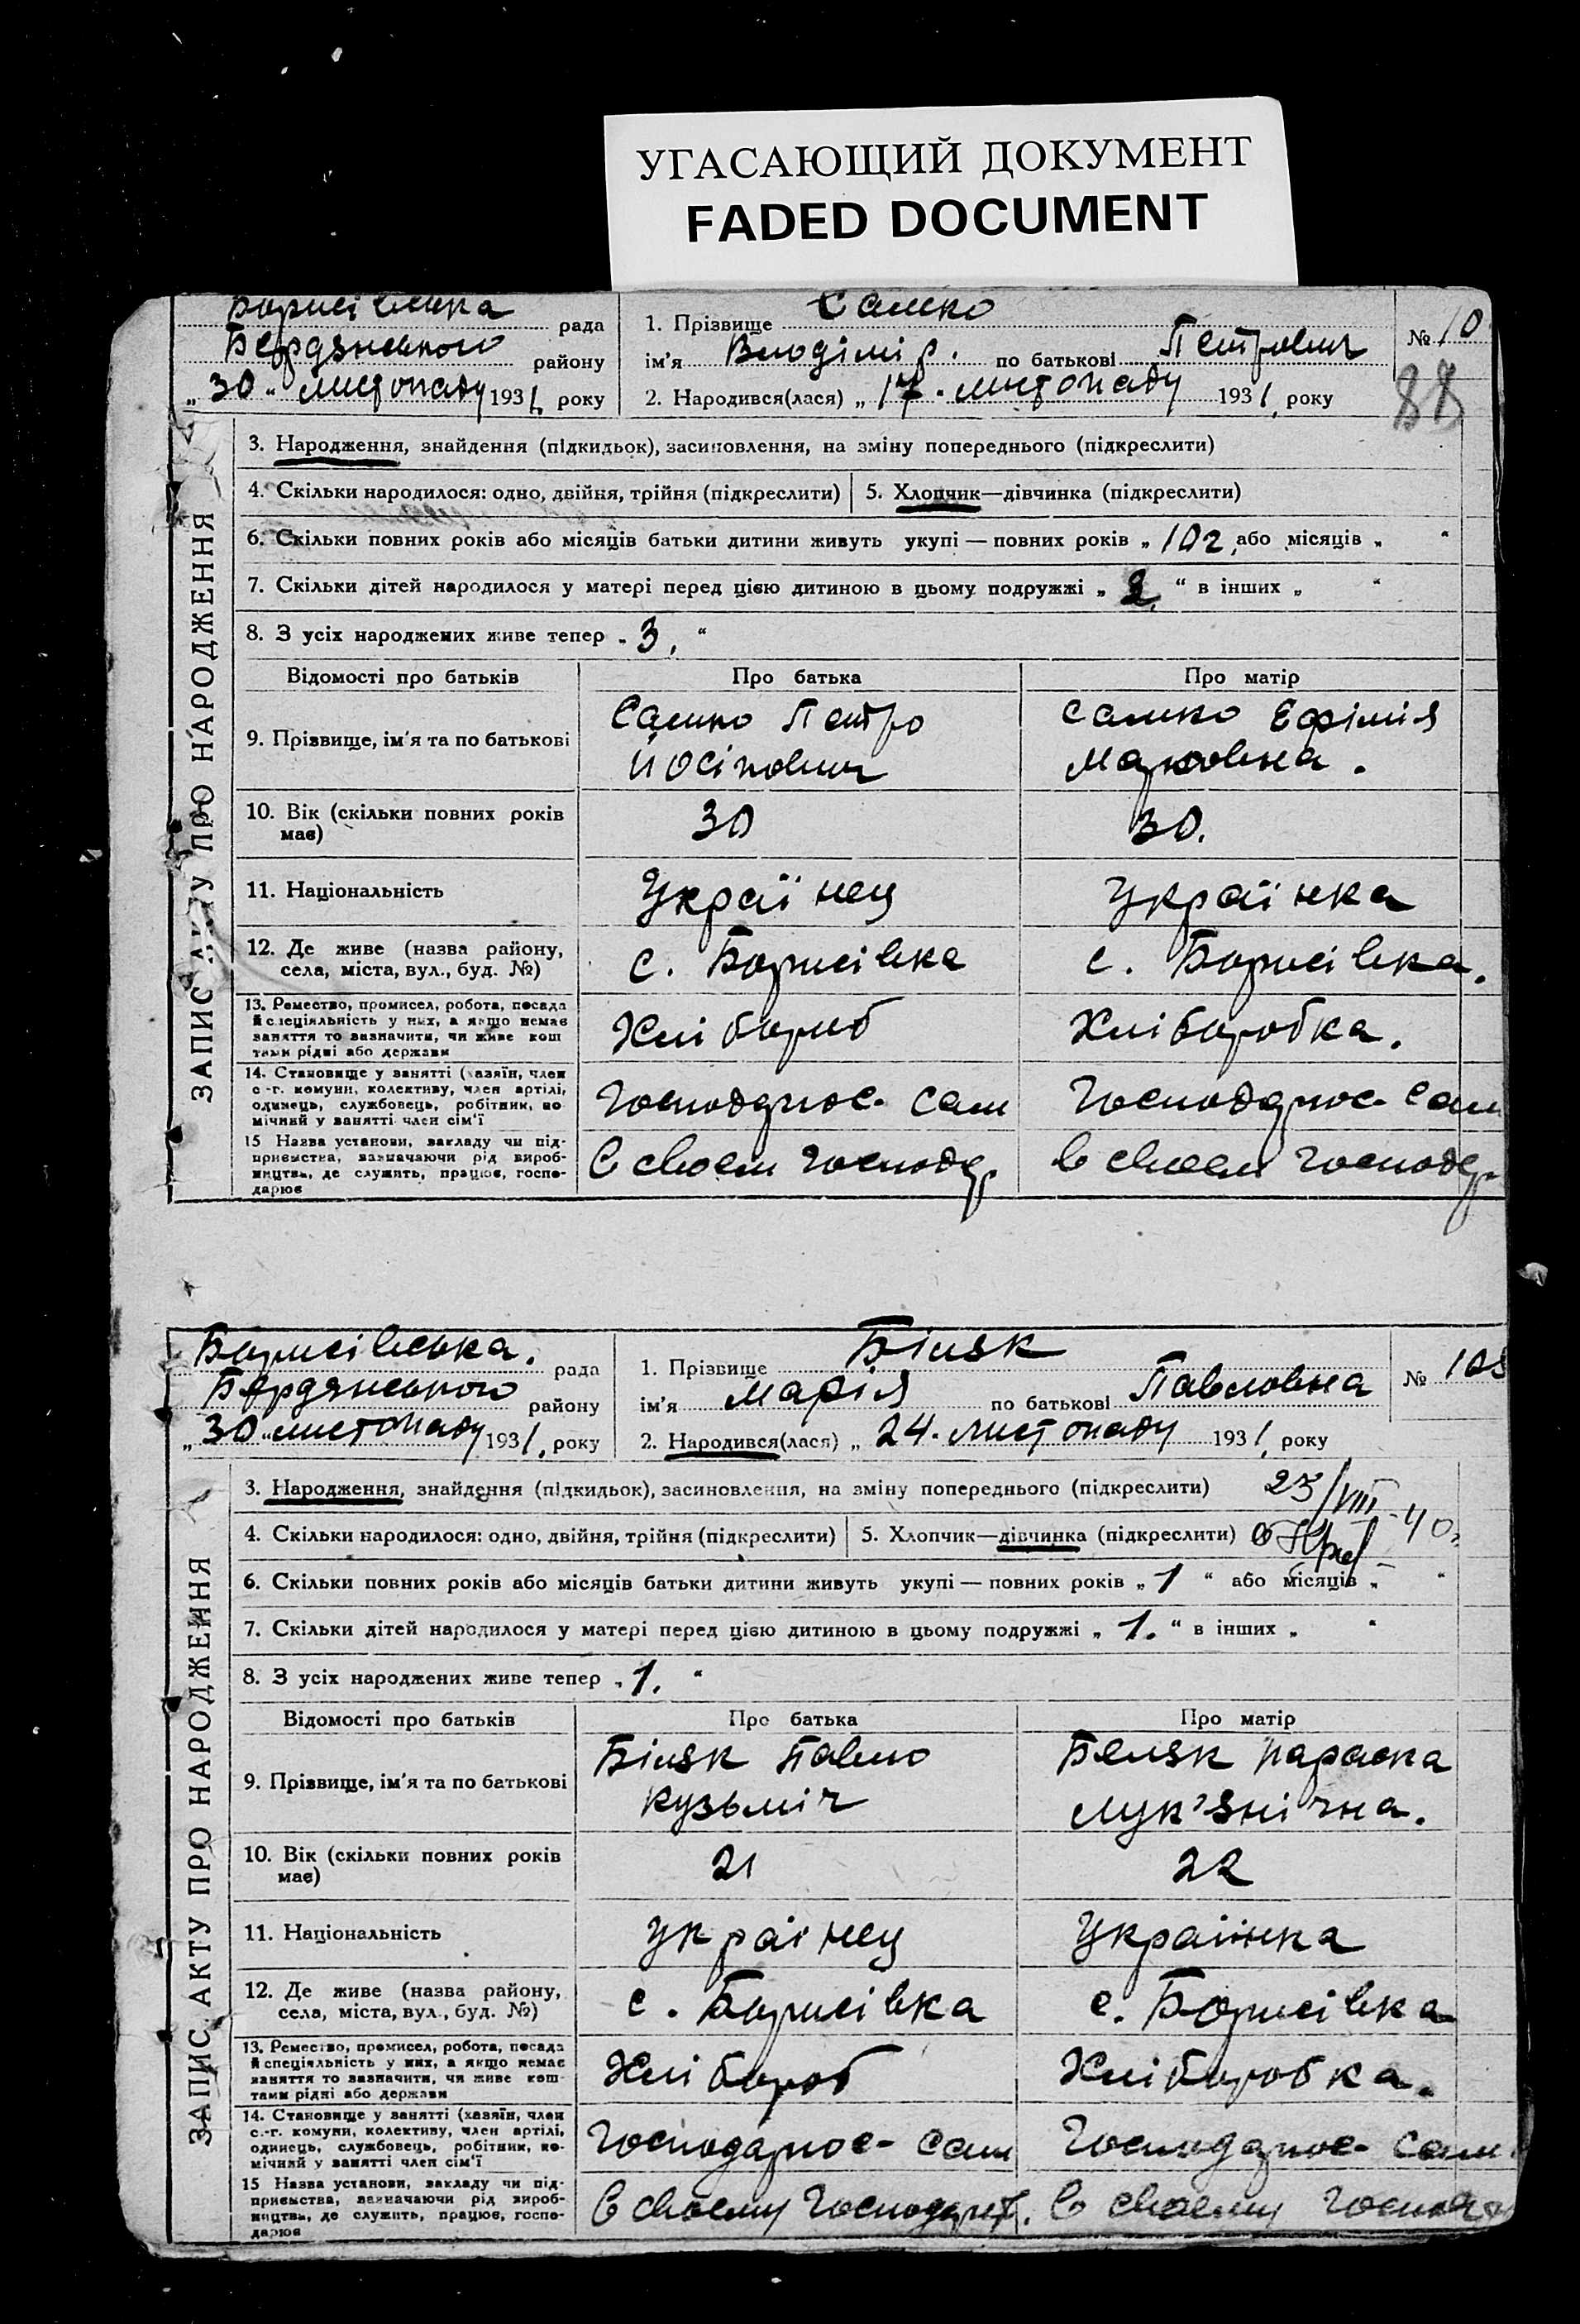 УГАСАЮЩИЙ ДОКУМЕНТ
FADED DOCUMENT
Борисівська рада
Бердянського району
„30“ листопаду 1931 року
1. Прізвище Самко
ім'я Влодімір. по батькові Петрович
2. Народився(лася) „17. листопаду 1931, року
№ 10
88
ЗАПИС АКТУ ПРО НАРОДЖЕННЯ
3. Народження, знайдення (підкидьок), засиновлення, на зміну попереднього (підкреслити)
4. Скільки народилося: одно, двійня, трійня (підкреслити) 5. Хлопчик—дівчинка (підкреслити)
6. Скільки повних років або місяців батьки дитини живуть укупі — повних років „10 г. або місяців „ “
7. Скільки дітей народилося у матері перед цією дитиною в цьому подружжі „ 2. “ в інших „ “
8. З усіх народжених живе тепер „3. “
Відомості про батьків Про батька Про матір
9. Прізвище, ім'я та по батькові
Самко Петро
Йосіпович
Самко Ефімія
Марковна.
10. Вік (скільки повних років має)
30
30.
11. Національність
Українец
Українка
12. Де живе (назва району, села, міста, вул., буд. №)
с. Борисівка
с. Борисівка.
13. Ремество, промисел, робота, посада й спеціяльність у них, а якщо немає заняття то зазначити, чи живе коштами рідні або держави
Хлібороб
Хліборобка.
14. Становище у занятті (хазяїн, член с.-г. комуни, колективу, член артілі, одинець, службовець, робітник, помічний у занятті член сім'ї
Господарює сам
Господарює сам
15 Назва установи, закладу чи підприємства, зазначаючи рід виробництва, де служить, працює, господарює
В своем господ.
в своем господ.
Борисівська. рада
Бердянського району
„30“ листопаду 1931, року
1. Прізвище Біляк
ім'я Марія по батькові Павловна
2. Народився(лася) „ 24. листопаду 1931, року
№ 108
ЗАПИС АКТУ ПРО НАРОДЖЕННЯ
3. Народження, знайдення (підкидьок), засиновлення, на зміну попереднього (підкреслити) 25/VIII-40
4. Скільки народилося: одно, двійня, трійня (підкреслити) 5. Хлопчик—дівчинка (підкреслити)
6. Скільки повних років або місяців батьки дитини живуть укупі — повних років „ 1 “ або місяців „ “
7. Скільки дітей народилося у матері перед цією дитиною в цьому подружжі „ 1. “ в інших „ “
8. З усіх народжених живе тепер „1. “
Відомості про батьків Про батька Про матір
9. Прізвище, ім'я та по батькові
Біляк Павло
Кузьміч
Беляк Параска
Лук'янічна.
10. Вік (скільки повних років має)
21
22
11. Національність
українец
Українка
12. Де живе (назва району, села, міста, вул., буд. №)
с. Борисівка
с. Борисівка
13. Ремество, промисел, робота, посада й спеціяльність у них, а якщо немає заняття то зазначити, чи живе коштами рідні або держави
Хлібороб
Хліборобка.
14. Становище у занятті (хазяїн, член с.-г. комуни, колективу, член артілі, одинець, службовець, робітник, помічний у занятті член сім'ї
Господарює- сам
Господарює- сам
15 Назва установи, закладу чи підприємства, зазначаючи рід виробництва, де служить, працює, господарює
В своему Господарст.
В своему